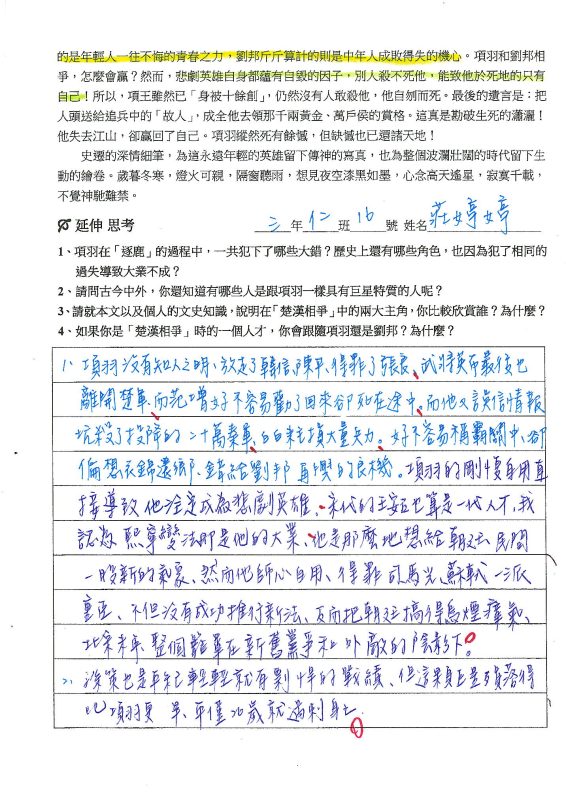 的是年輕人一往不悔的青春之力,劉邦斤斤算計的則是中年人成敗得失的機心。項羽和劉邦相
爭,怎麼會贏?然而,悲劇英雄自身都蘊有自毀的因子,別人殺不死他,能致他於死地的只有
自己!所以,項王雖然已「身被十餘創」,仍然沒有人敢殺他,他自刎而死。最後的遺言是:把
人頭送給追兵中的「故人」,成全他去領那千兩黃金、萬戶侯的賞格。這真是勘破生死的瀟灑!
他失去江山,卻贏回了自己。項羽縱然死有餘憾,但缺憾也已還諸天地!
史遷的深情細筆,為這永遠年輕的英雄留下傳神的寫真,也為整個波瀾壯闊的時代留下生
動的繪卷。歲暮冬寒,燈火可親,隔窗聽雨,想見夜空漆黑如墨,心念高天遙星,寂寞千載,
不覺神馳難禁。
延伸 思考 三 年 仁 班 16 號 姓名 莊婷婷
1、項羽在「逐鹿」的過程中,一共犯下了哪些大錯?歷史上還有哪些角色,也因為犯了相同的
過失導致大業不成?
2、請問古今中外,你還知道有哪些人是跟項羽一樣具有巨星特質的人呢?
3、請就本文以及個人的文史知識,說明在「楚漢相爭」中的兩大主角,你比較欣賞誰?為什麼?
4、如果你是「楚漢相爭」時的一個人才,你會跟隨項羽還是劉邦?為什麼?
1、項羽沒有知人之明、放走了韓信、陳平、得罪了張良、武將英布最後也
離開楚軍、而范增好不容易勸了回來卻死在途中、而他又誤信情報
坑殺了投降的二十萬秦軍、白白耗損大量兵力。好不容易稱霸關中、卻
偏想衣錦還鄉、錯給劉邦再興的良機。項羽的剛愎自用直
接導致他注定成為悲劇英雄、宋代的王安石也算是一代人才,我
認為熙寧變法即是他的大業、他是那麼地想給朝廷、民間
一股新的氣象、然而他師心自用、得罪司馬光、蘇軾一派
重臣、不但沒有成功推行新法、反而把朝廷搞得烏煙瘴氣、
北宋末年、整個籠罩在新舊黨爭和外敵的陰影下。
2、孫策也是年紀輕輕就有剽悍的戰績、但這顆巨星殞落得
比項羽更早、年僅26歲就遇刺身亡